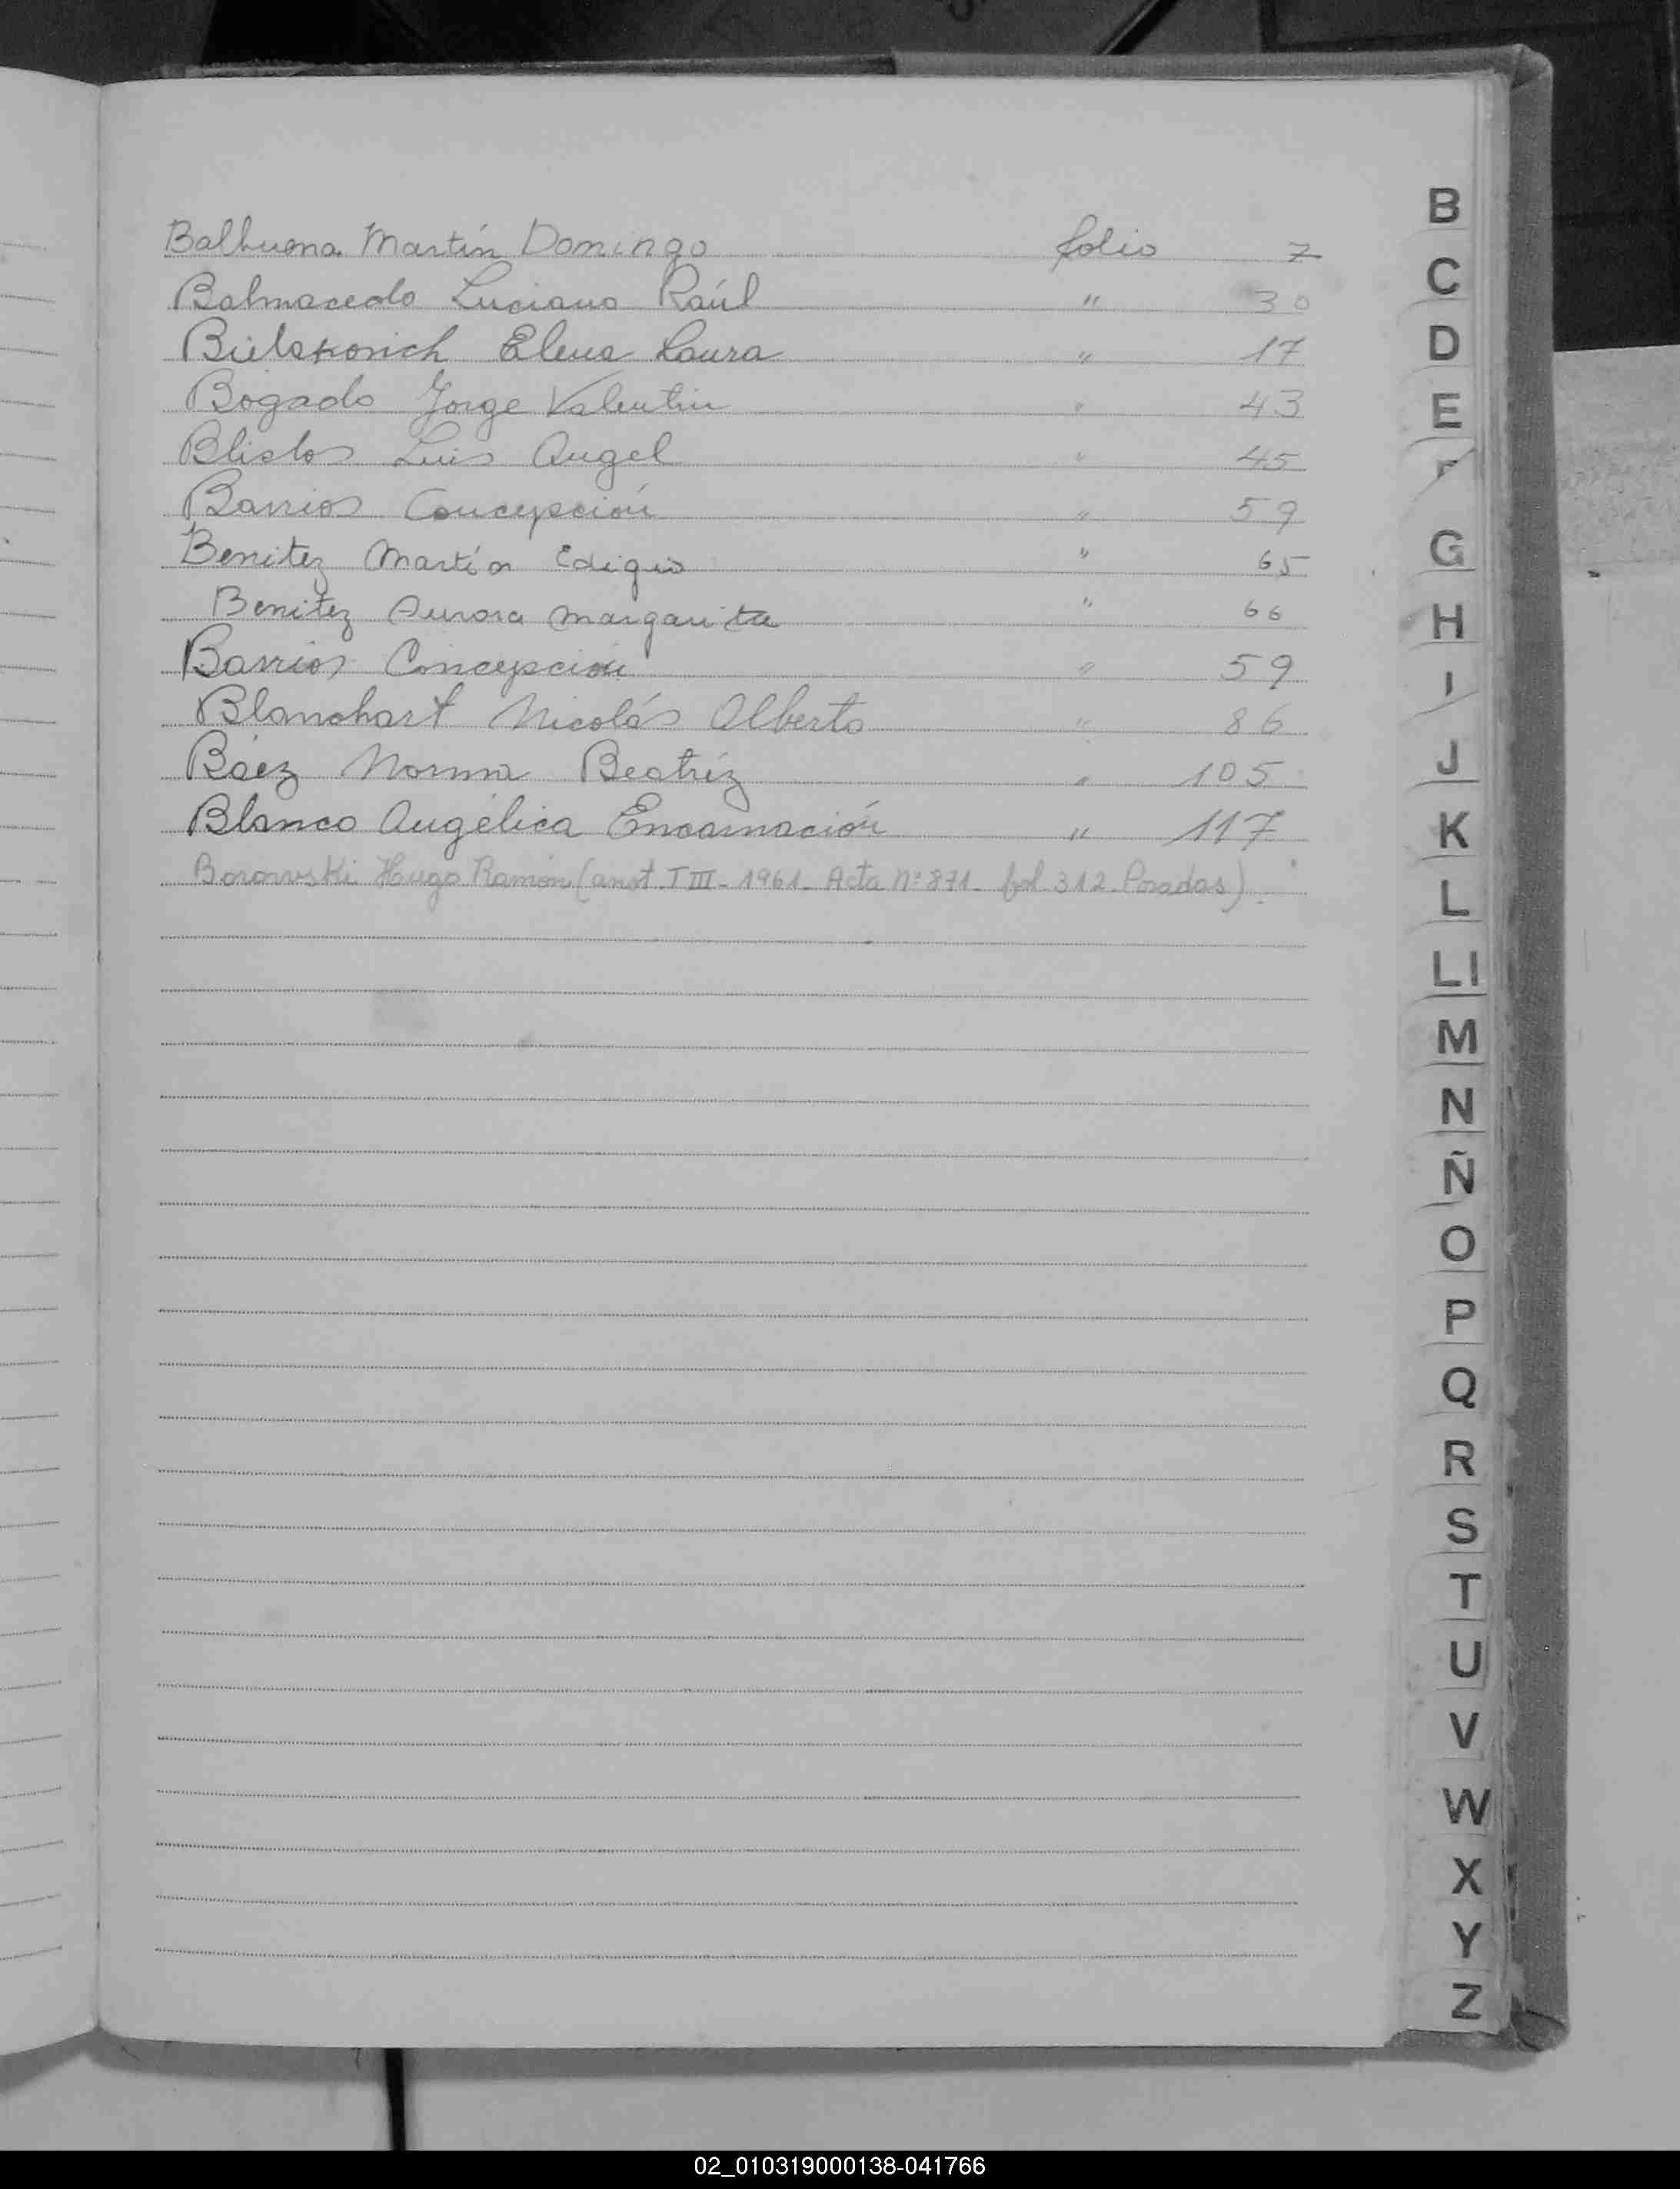 Balbuena Martín Domingo folio 7
Balmaceda Luciano Raúl " 30
Elena Laura " 17
Bogado Jorge Valentin " 43
Luis Angel " 45
Barrios Concepción " 59
Benitez Martín Edigio " 65
Benitez Aurora Margarita " 66
Barrios Concepción " 59
Blanchart Nicolás Alberto " 86
Báez Norma Beatríz " 105
Blanco Angélica Encarnación " 117
Borowski Hugo Ramón (anot. T III - 1961 - Acta Nº 871 - fol 312 Posadas).
B
C
D
E
F
G
H
I
J
K
L
Ll
M
N
Ñ
O
P
Q
R
S
T
U
V
W
X
Y
Z
02_010319000138-041766